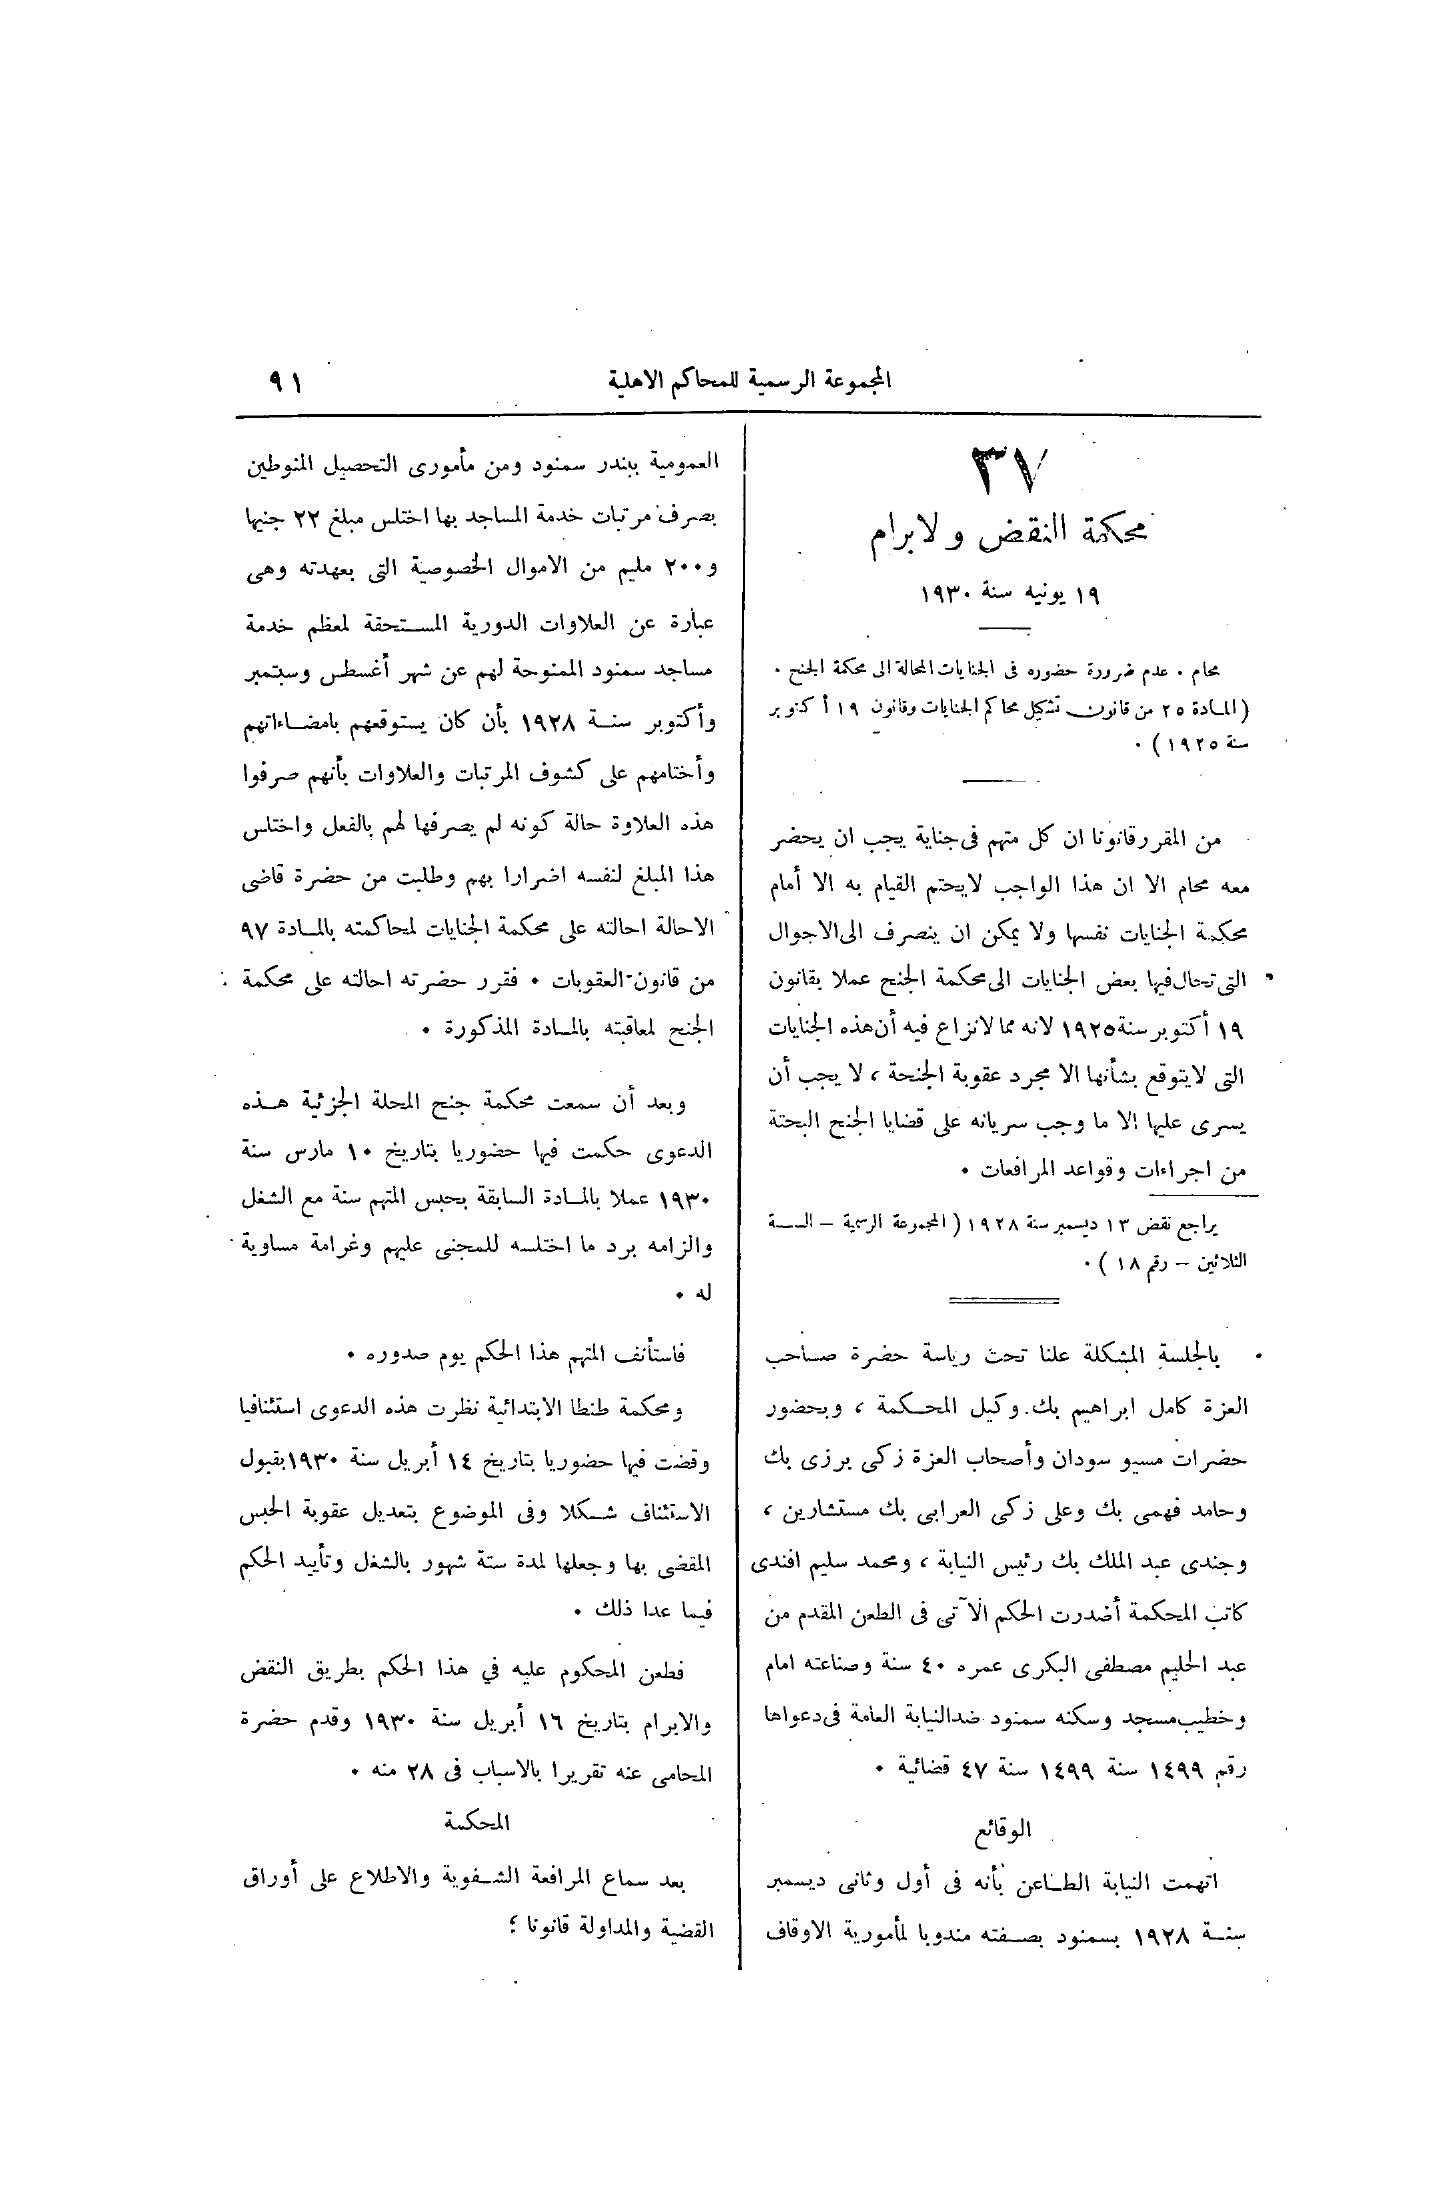 المجموعة الرسمية للمحاكم الاهلية
٩١
٣٧
محكمة النقض ولابرام
١٩ يونيه سنة ١٩٣٠
محام . عدم ضرورة حضوره فى الجنايات المحالة الى محكمة الجنح .
( المادة ٢٥ من قانون تشكيل محاكم الجنايات وقانون ١٩ أكتوبر
سنة ١٩٢٥ ) .
من المقرر قانونا ان كل متهم فى جناية يجب ان يحضر
معه محام الا ان هذا الواجب لايحتم القيام به الا أمام
محكمة الجنايات نفسها ولا يمكن ان ينصرف الى الاحوال
التى تحال فيها بعض الجنايات الى محكمة الجنح عملا بقانون
١٩ أكتوبر سنة ١٩٢٥ لانه مما لانزاع فيه أن هذه الجنايات
التى لايتوقع بشأنها الا مجرد عقوبة الجنحة ، لا يجب أن
يسرى عليها الا ما وجب سريانه على قضايا الجنح البحتة
من اجراءات وقواعد المرافعات .
يراجع نقض ١٣ ديسمبر سنة ١٩٢٨ ( المجموعة الرسمية – السنة
الثلاثين – رقم ١٨ ) .
بالجلسة المشكلة علنا تحت رياسة حضرة صاحب
العزة كامل ابراهيم بك وكيل المحكمة ، وبحضور
حضرات مسيو سودان وأصحاب العزة زكى برزى بك
وحامد فهمى بك وعلى زكى العرابى بك مستشارين ،
وجندى عبد الملك بك رئيس النيابة ، ومحمد سليم افندى
كاتب المحكمة أصدرت الحكم الآتى فى الطعن المقدم من
عبد الحليم مصطفى البكرى عمره ٤٠ سنة وصناعته امام
وخطيب مسجد وسكنه سمنود ضد النيابة العامة فى دعواها
رقم ١٤٩٩ سنة ١٤٩٩ سنة ٤٧ قضائية .
الوقائع
اتهمت النيابة الطاعن بأنه فى أول وثانى ديسمبر
سنة ١٩٢٨ بسمنود بصفته مندوبا لمأمورية الاوقاف
العمومية ببندر سمنود ومن مأمورى التحصيل المنوطين
بصرف مرتبات خدمة المساجد بها اختلس مبلغ ٢٢ جنيها
و٢٠٠ مليم من الاموال الخصوصية التى بعهدته وهى
عبارة عن العلاوات الدورية المستحقة لمعظم خدمة
مساجد سمنود الممنوحة لهم عن شهر أغسطس وسبتمبر
وأكتوبر سنة ١٩٢٨ بأن كان يستوقعهم بامضاءاتهم
وأختامهم على كشوف المرتبات والعلاوات بأنهم صرفوا
هذه العلاوة حالة كونه لم يصرفها لهم بالفعل واختلس
هذا المبلغ لنفسه اضرارا بهم وطلبت من حضرة قاضى
الاحالة احالته على محكمة الجنايات لمحاكمته بالمادة ٩٧
من قانون العقوبات . فقرر حضرته احالته على محكمة
الجنح لمعاقبته بالمادة المذكورة .
وبعد أن سمعت محكمة جنح المحلة الجزئية هذه
الدعوى حكمت فيها حضوريا بتاريخ ١٠ مارس سنة
١٩٣٠ عملا بالمادة السابقة بحبس المتهم سنة مع الشغل
والزامه برد ما اختلسه للمجنى عليهم وغرامة مساوية
له .
فاستأنف المتهم هذا الحكم يوم صدوره .
ومحكمة طنطا الابتدائية نظرت هذه الدعوى استئنافيا
وقضت فيها حضوريا بتاريخ ١٤ أبريل سنة ١٩٣٠ بقبول
الاستئناف شكلا وفى الموضوع بتعديل عقوبة الحبس
المقضى بها وجعلها لمدة ستة شهور بالشغل وتأييد الحكم
فيما عدا ذلك .
فطعن المحكوم عليه في هذا الحكم بطريق النقض
والابرام بتاريخ ١٦ أبريل سنة ١٩٣٠ وقدم حضرة
المحامى عنه تقريرا بالاسباب فى ٢٨ منه .
المحكمة
بعد سماع المرافعة الشفوية والاطلاع على أوراق
القضية والمداولة قانونا ؛